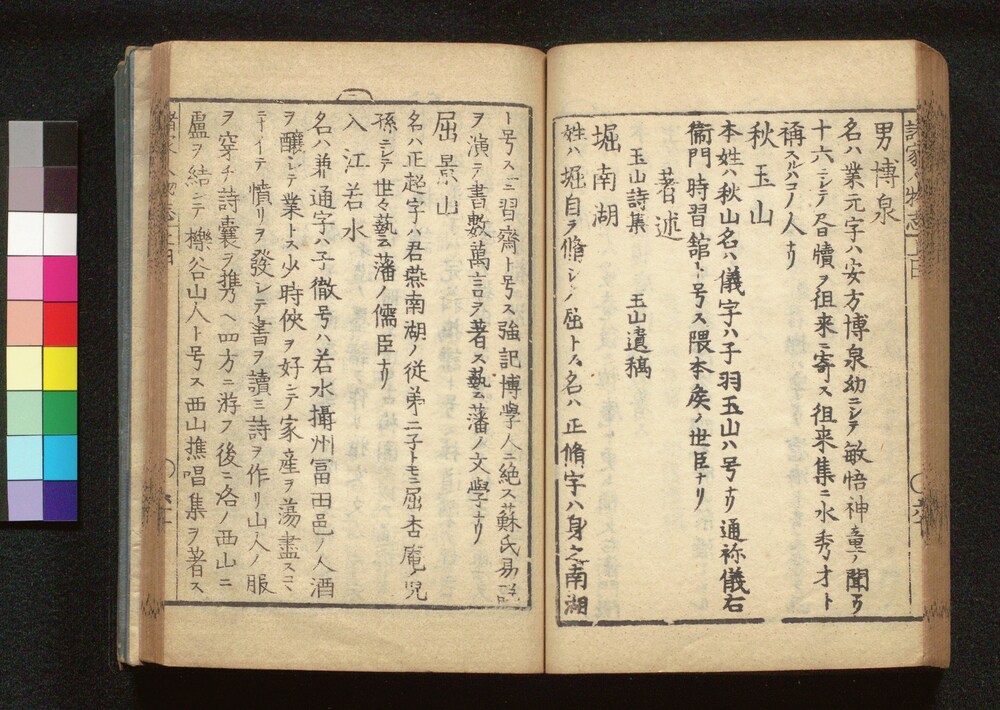 男博泉
名ハ業元字ハ安方博泉幼ニシテ敏悟神童ノ聞ヱ
十六ニシテ尺牘ヲ徂来ニ寄ス徂来集ニ水秀才ト
稱スルハコノ人ナリ
秋玉山
本姓ハ秋山名ハ儀字ハ子羽玉山ハ号ナリ通称儀右
衞門時習舘ト号ス隈本矦ノ世臣ナリ
著述
玉山詩集 玉山遺稿
堀南湖
姓ハ堀自ラ脩シテ屈トス名ハ正脩字ハ身之南湖
ト号ス三習齋ト号ス強記博學人ニ絶ス蘇氏易
ヲ演テ書數萬言ヲ著ス藝藩ノ文學ナリ
屈景山
名ハ正超字ハ君燕南湖ノ従弟ニ子トモニ屈杏庵ノ児
孫ニシテ世々藝藩ノ儒臣ナリ
入江若水
名ハ兼通字ハ子徹号ハ若水攝州冨田邑ノ人酒
ヲ醸シテ業トス少時俠ヲ好ニテ家産ヲ蕩盡スコヽ
ニヲイテ憤リヲ發シテ書ヲ讀ミ詩ヲ作リ山人ノ服
ヲ穿チ詩嚢ヲ携ヘ四方ニ游フ後ニ洛ノ西山ニ
盧ヲ結ンテ櫟谷山人ト号ス西山樵唱集ヲ著ス